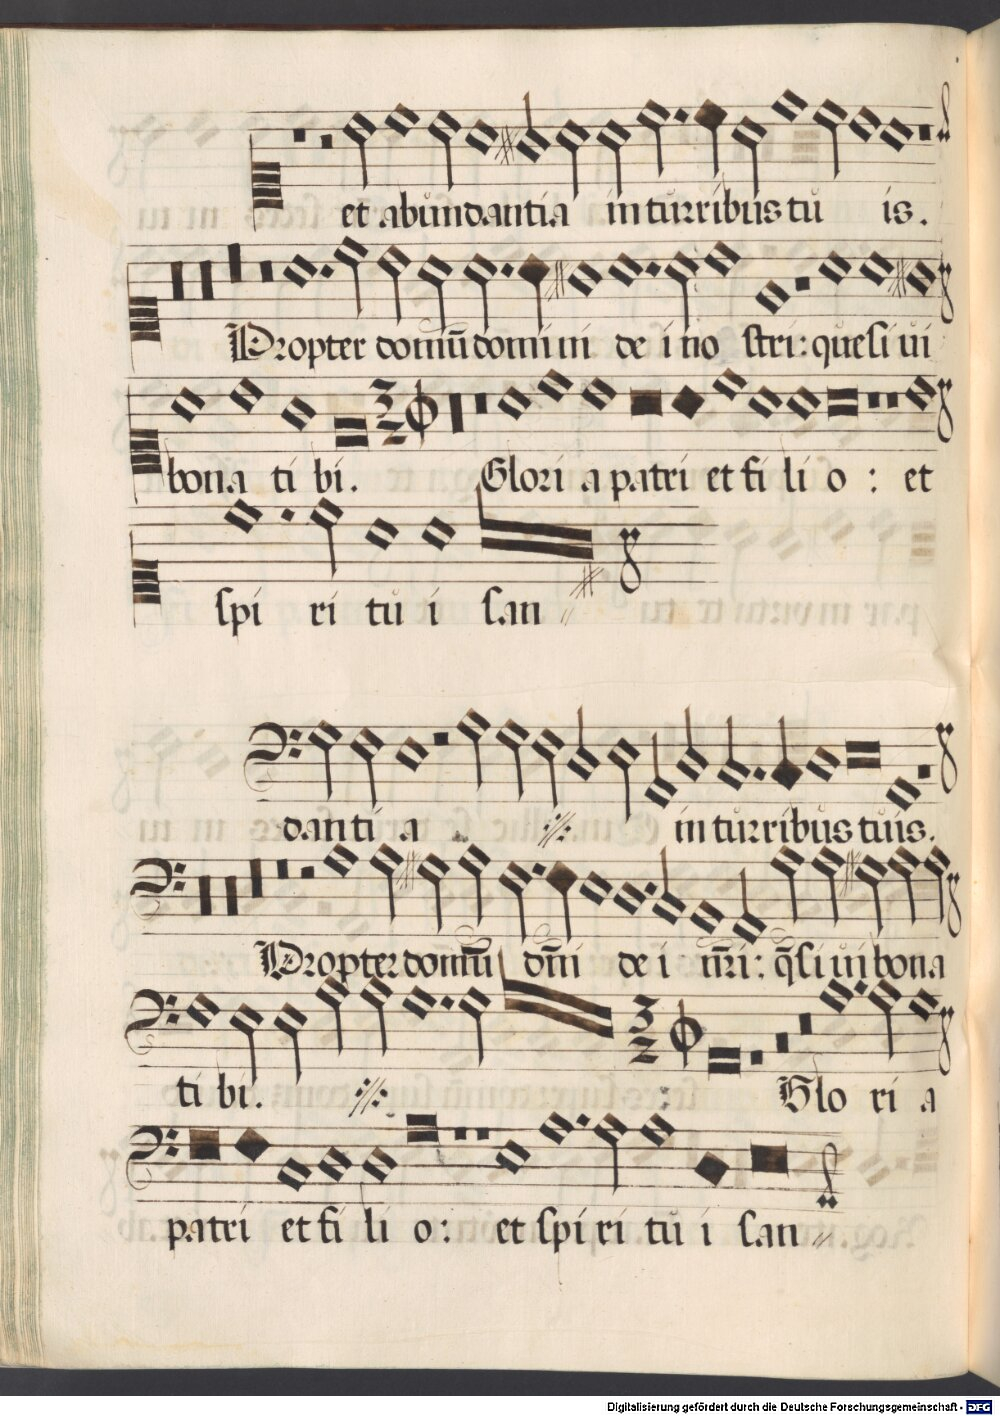 et abundantia in turribus tu is.
Propter domū domini de i no stri: quesi ui
bona ti bi. Glori a patri et fi li o: et
spi ri tu i san
danti a in turribus tuis.
Propter domū dn̄i de i nr̄i: q̄si ui bona
ti bi. Glo ri a
patri et fi li o: et spi ri tu i san
Digitalisierung gefördert durch die Deutsche Forschungsgemeinschaft - DFG